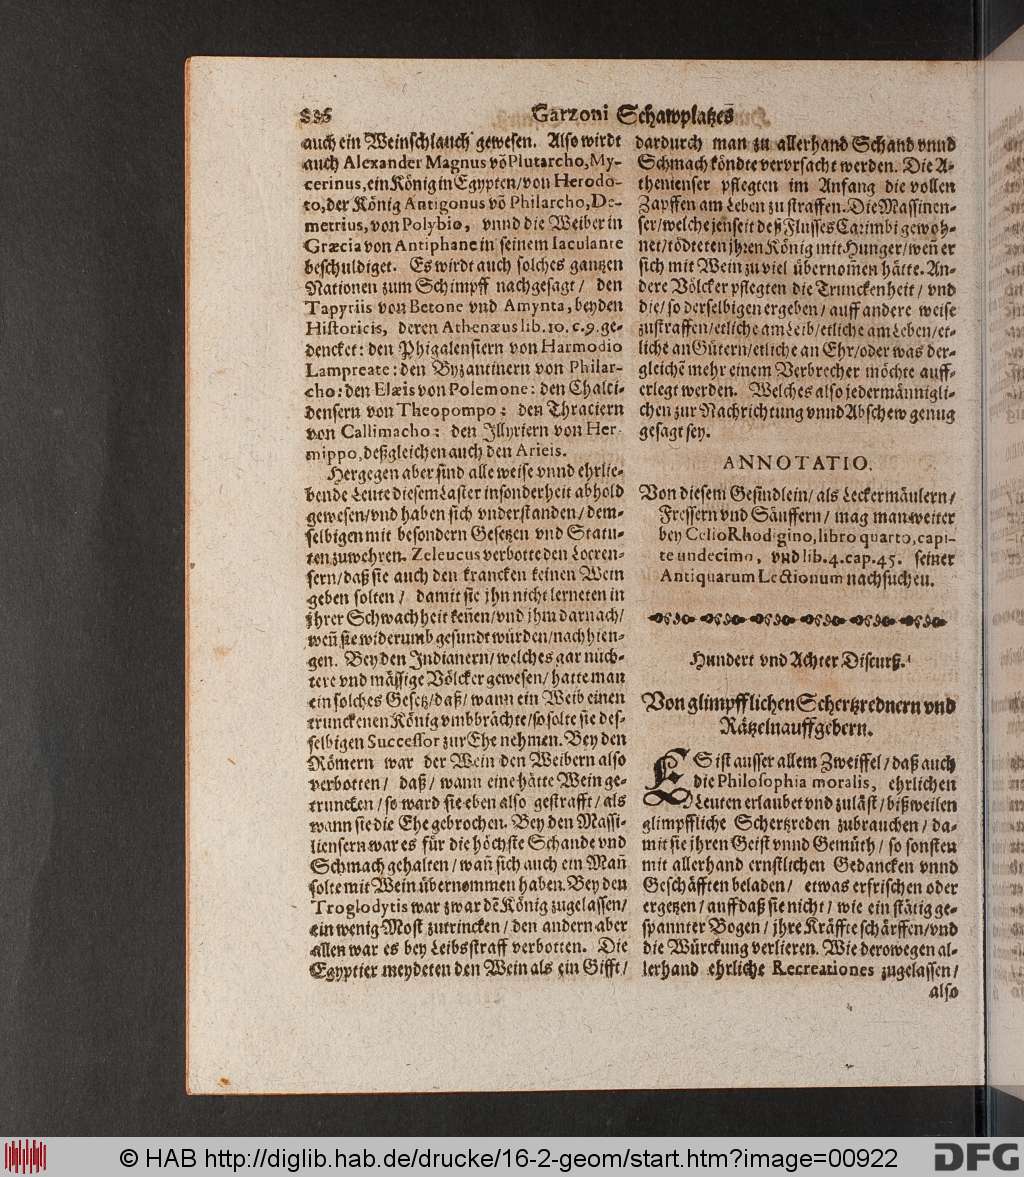 836
Garzoni Schawplatzes
auch ein Weinschlauch gewesen. Also wirdt
auch Alexander Magnus võ Plutarcho, My-
cerinus, ein König in Egypten/ von Herodo-
to, der König Antigonus võ Philarcho, De-
metrius, von Polybio, vnnd die Weiber in
Græcia von Antiphane in seinem Iaculante
beschuldiget. Es wirdt auch solches gantzen
Nationen zum Schimpff nachgesagt/ den
Tapyriis von Betone vnd Amynta, beyden
Historicis, deren Athenæus lib. 10. c. 9. ge-
dencket: den Phigalensiern von Harmodio
Lampreate: den Byzantinern von Philar-
cho: den Elæis von Polemone: den Chalci-
densern von Theopompo: den Thraciern
von Callimacho: den Illyriern von Her-
mippo, deßgleichen auch den Arieis.
Hergegen aber sind alle weise vnnd ehrlie-
bende Leute diesem Laster insonderheit abhold
gewesen/ vnd haben sich vnderstanden/ dem-
selbigen mit besondern Gesetzen vnd Statu-
ten zuwehren. Zeleucus verbotte den Locren-
sern/ daß sie auch den krancken keinen Wein
geben solten/ damit sie jhn nicht lerneten in
jhrer Schwachheit keñen/ vnd jhm darnach/
weñ sie widerumb gesundt würden/ nachhien-
gen. Bey den Indianern/ welches gar nüch-
tere vnd mässige Völcker gewesen/ hatte man
ein solches Gesetz/ daß/ wann ein Weib einen
trunckenen König vmbbrächte/ so solte sie des-
selbigen Successor zur Ehe nehmen. Bey den
Römern war der Wein den Weibern also
verbotten/ daß/ wann eine hätte Wein ge-
truncken/ so ward sie eben also gestrafft/ als
wann sie die Ehe gebrochen. Bey den Massi-
liensern war es für die höchste Schande vnd
Schmach gehalten/ wañ sich auch ein Mañ
solte mit Wein übernommen haben. Bey den
Troglodytis war zwar dẽ König zugelassen/
ein wenig Most zutrincken/ den andern aber
allen war es bey Leibsstraff verbotten. Die
Egyptier meydeten den Wein als ein Gifft/
dardurch man zu allerhand Schand vnnd
Schmach köndte vervrsacht werden. Die A-
thenienser pflegten im Anfang die vollen
Zapffen am Leben zu straffen. Die Massinen-
ser/ welche jenseit deß Flusses Carimbi gewoh-
net/ tödteten jhren König mit Hunger/ weñ er
sich mit Wein zu viel übernom̃en hätte. An-
dere Völcker pflegten die Trunckenheit/ vnd
die/ so derselbigen ergeben/ auff andere weise
zustraffen/ etliche am Leib/ etliche am Leben/ et-
liche an Gütern/ etliche an Ehr/ oder was der-
gleichẽ mehr einem Verbrecher möchte auff-
erlegt werden. Welches also jedermännigli-
chen zur Nachrichtung vnnd Abschew genug
gesagt sey.
ANNOTATIO.
Von diesem Gesindlein/ als Leckermäulern/
Fressern vnd Säuffern/ mag man weiter
bey Celio Rhodigino, libro quarto, capi-
te undecimo, vnd lib. 4. cap. 45. seiner
Antiquarum Lectionum nachsuchen.
Hundert vnd Achter Discurß.
Von glimpfflichen Schertzrednern vnd
Rätzelnauffgebern.
ES ist ausser allem Zweiffel/ daß auch
die Philosophia moralis, ehrlichen
Leuten erlaubet vnd zuläst/ bißweilen
glimpffliche Schertzreden zubrauchen/ da-
mit sie jhren Geist vnnd Gemüth/ so sonsten
mit allerhand ernstlichen Gedancken vnnd
Geschäfften beladen/ etwas erfrischen oder
ergetzen/ auff daß sie nicht/ wie ein stätig ge-
spannter Bogen/ jhre Kräffte schärffen/ vnd
die Würckung verlieren. Wie derowegen al-
lerhand ehrliche Recreationes zugelassen/
also
© HAB http://diglib.hab.de/drucke/16-2-geom/start.htm?image=00922
DFG